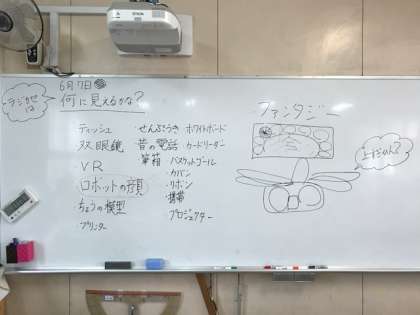 EPSON
6月7日
ラジカセは
何に見えるかな?
ティッシュ
双眼鏡
VR
ロボットの顔
ちょうの模型
・プリンター
・せんぷうき
昔の電話
筆箱
・バスケットゴール
・カバン
・リボン
・携帯
・プロジェクター
ホワイトボード
・カードリーダー
ファンタジー